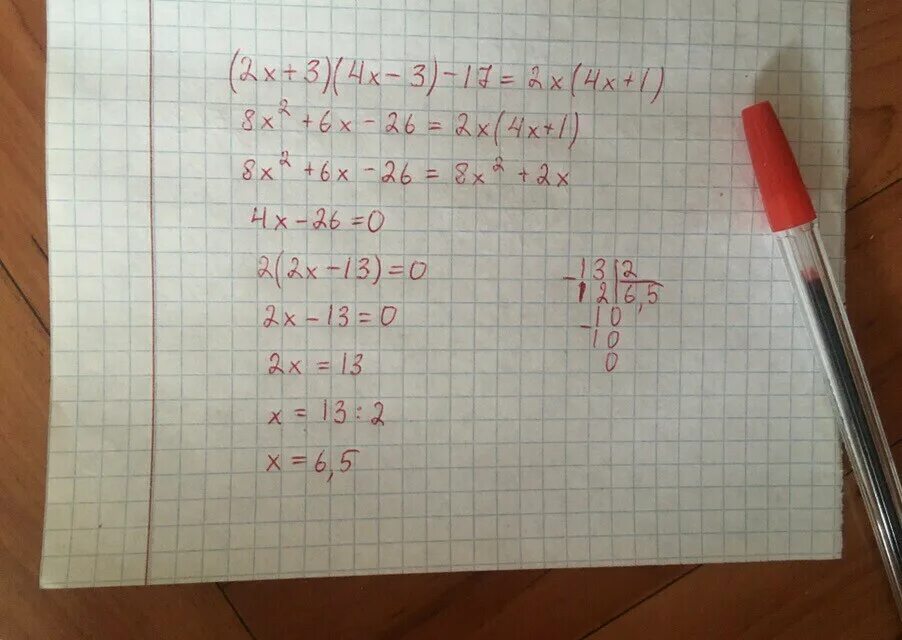 (2x+3)(4x-3)-17=2x(4x+1)
8x²+6x-26=2x(4x+1)
8x²+6x-26=8x²+2x
4x-26=0
2(2x-13)=0
2x-13=0
2x=13
x=13:2
x=6,5
-13|2
12|6,5
-10
10
0